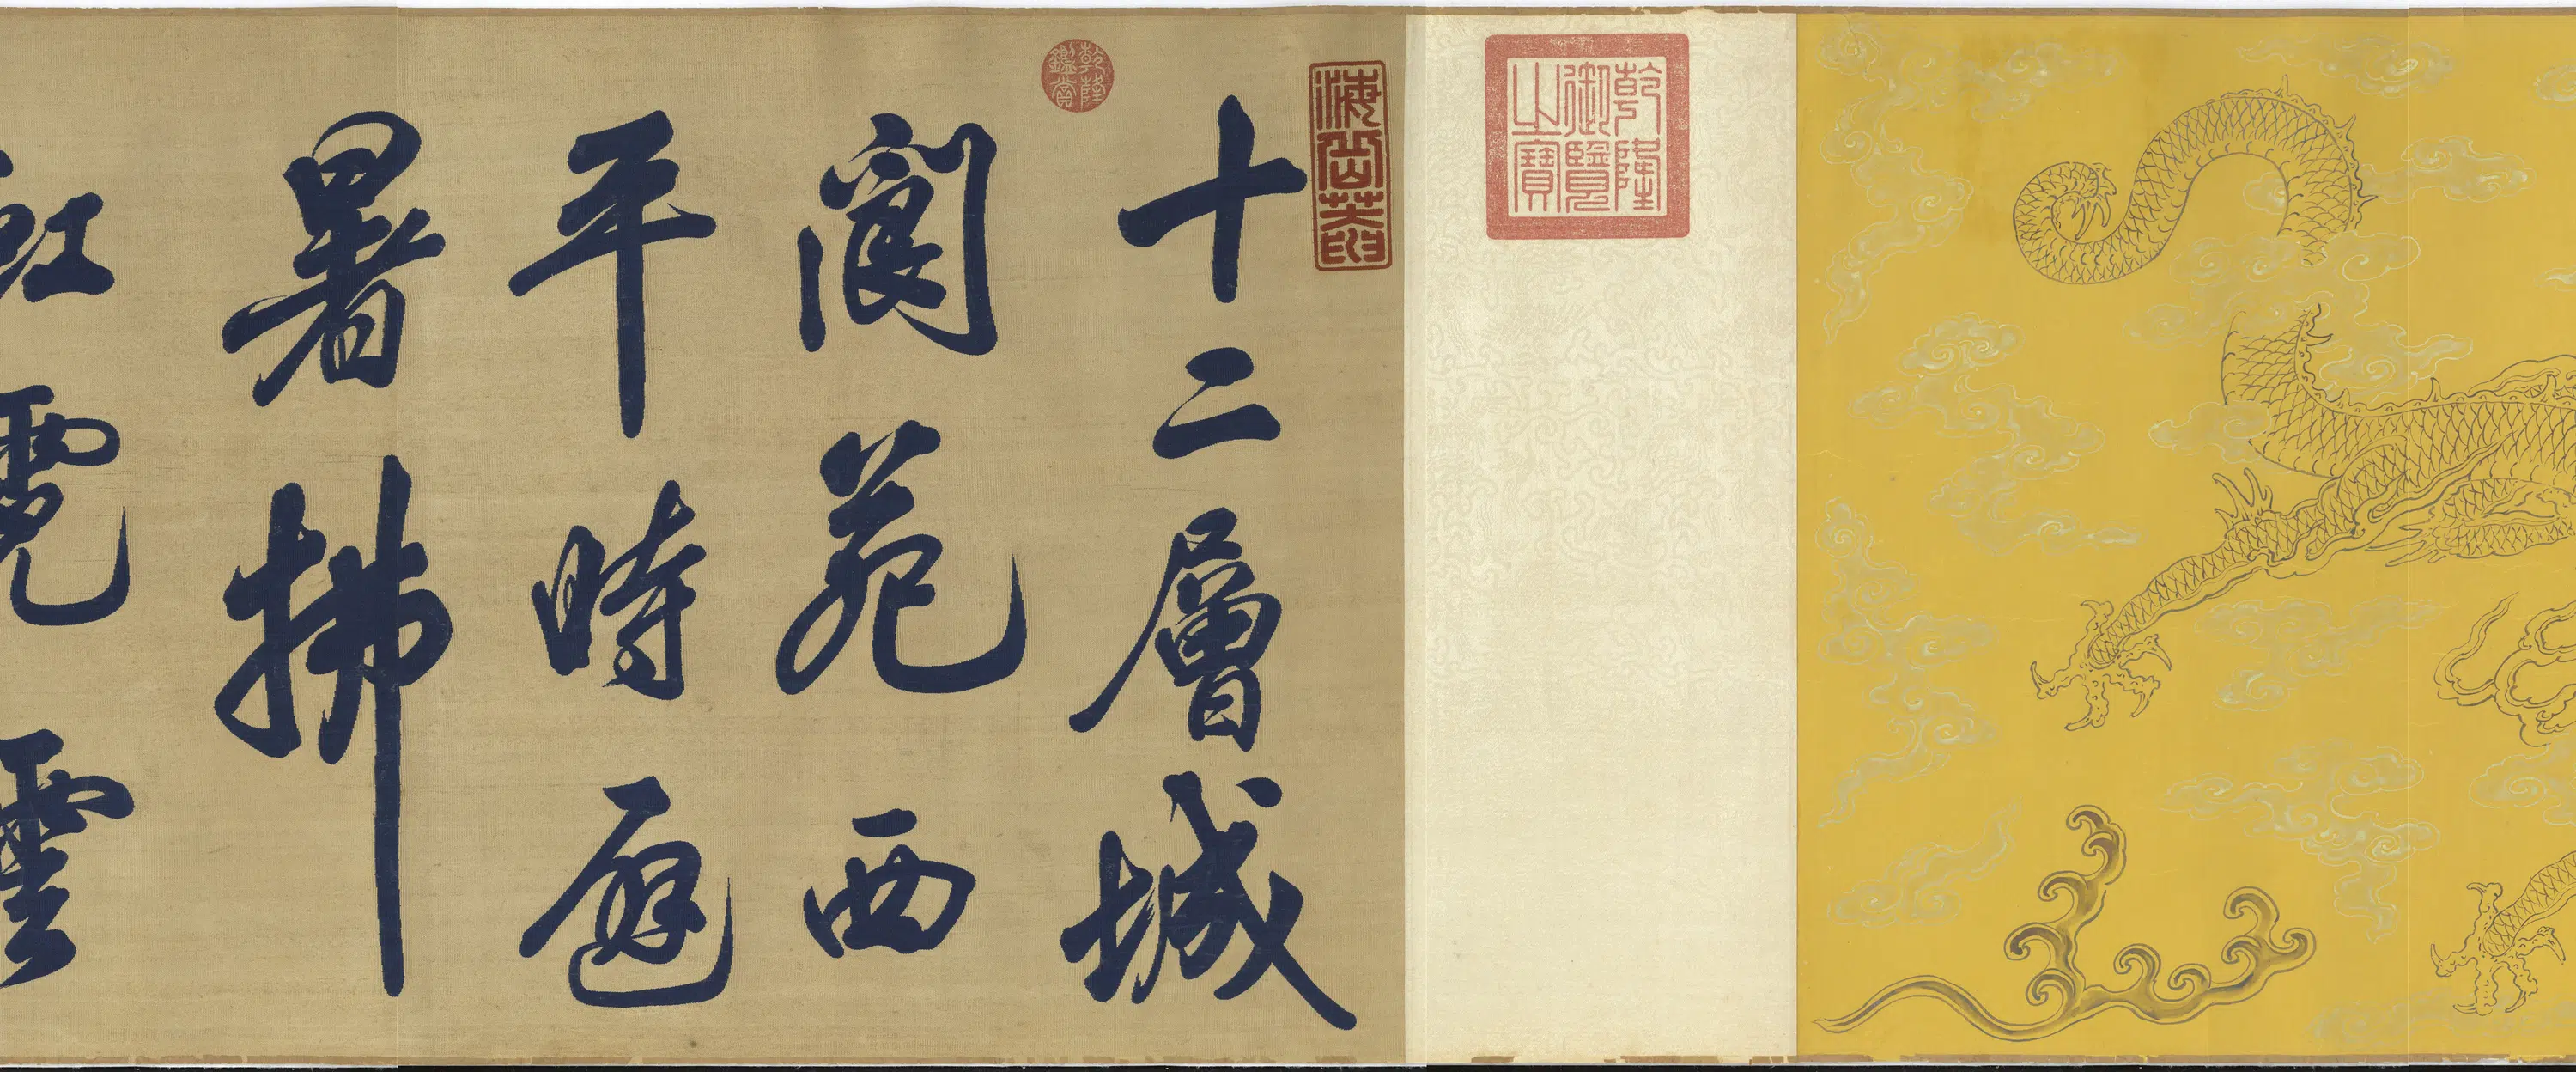 乾隆御覽之寶
海岳菴
十二層城
乾隆鑑賞
閬苑西
平時避
暑拂
虹霓雲